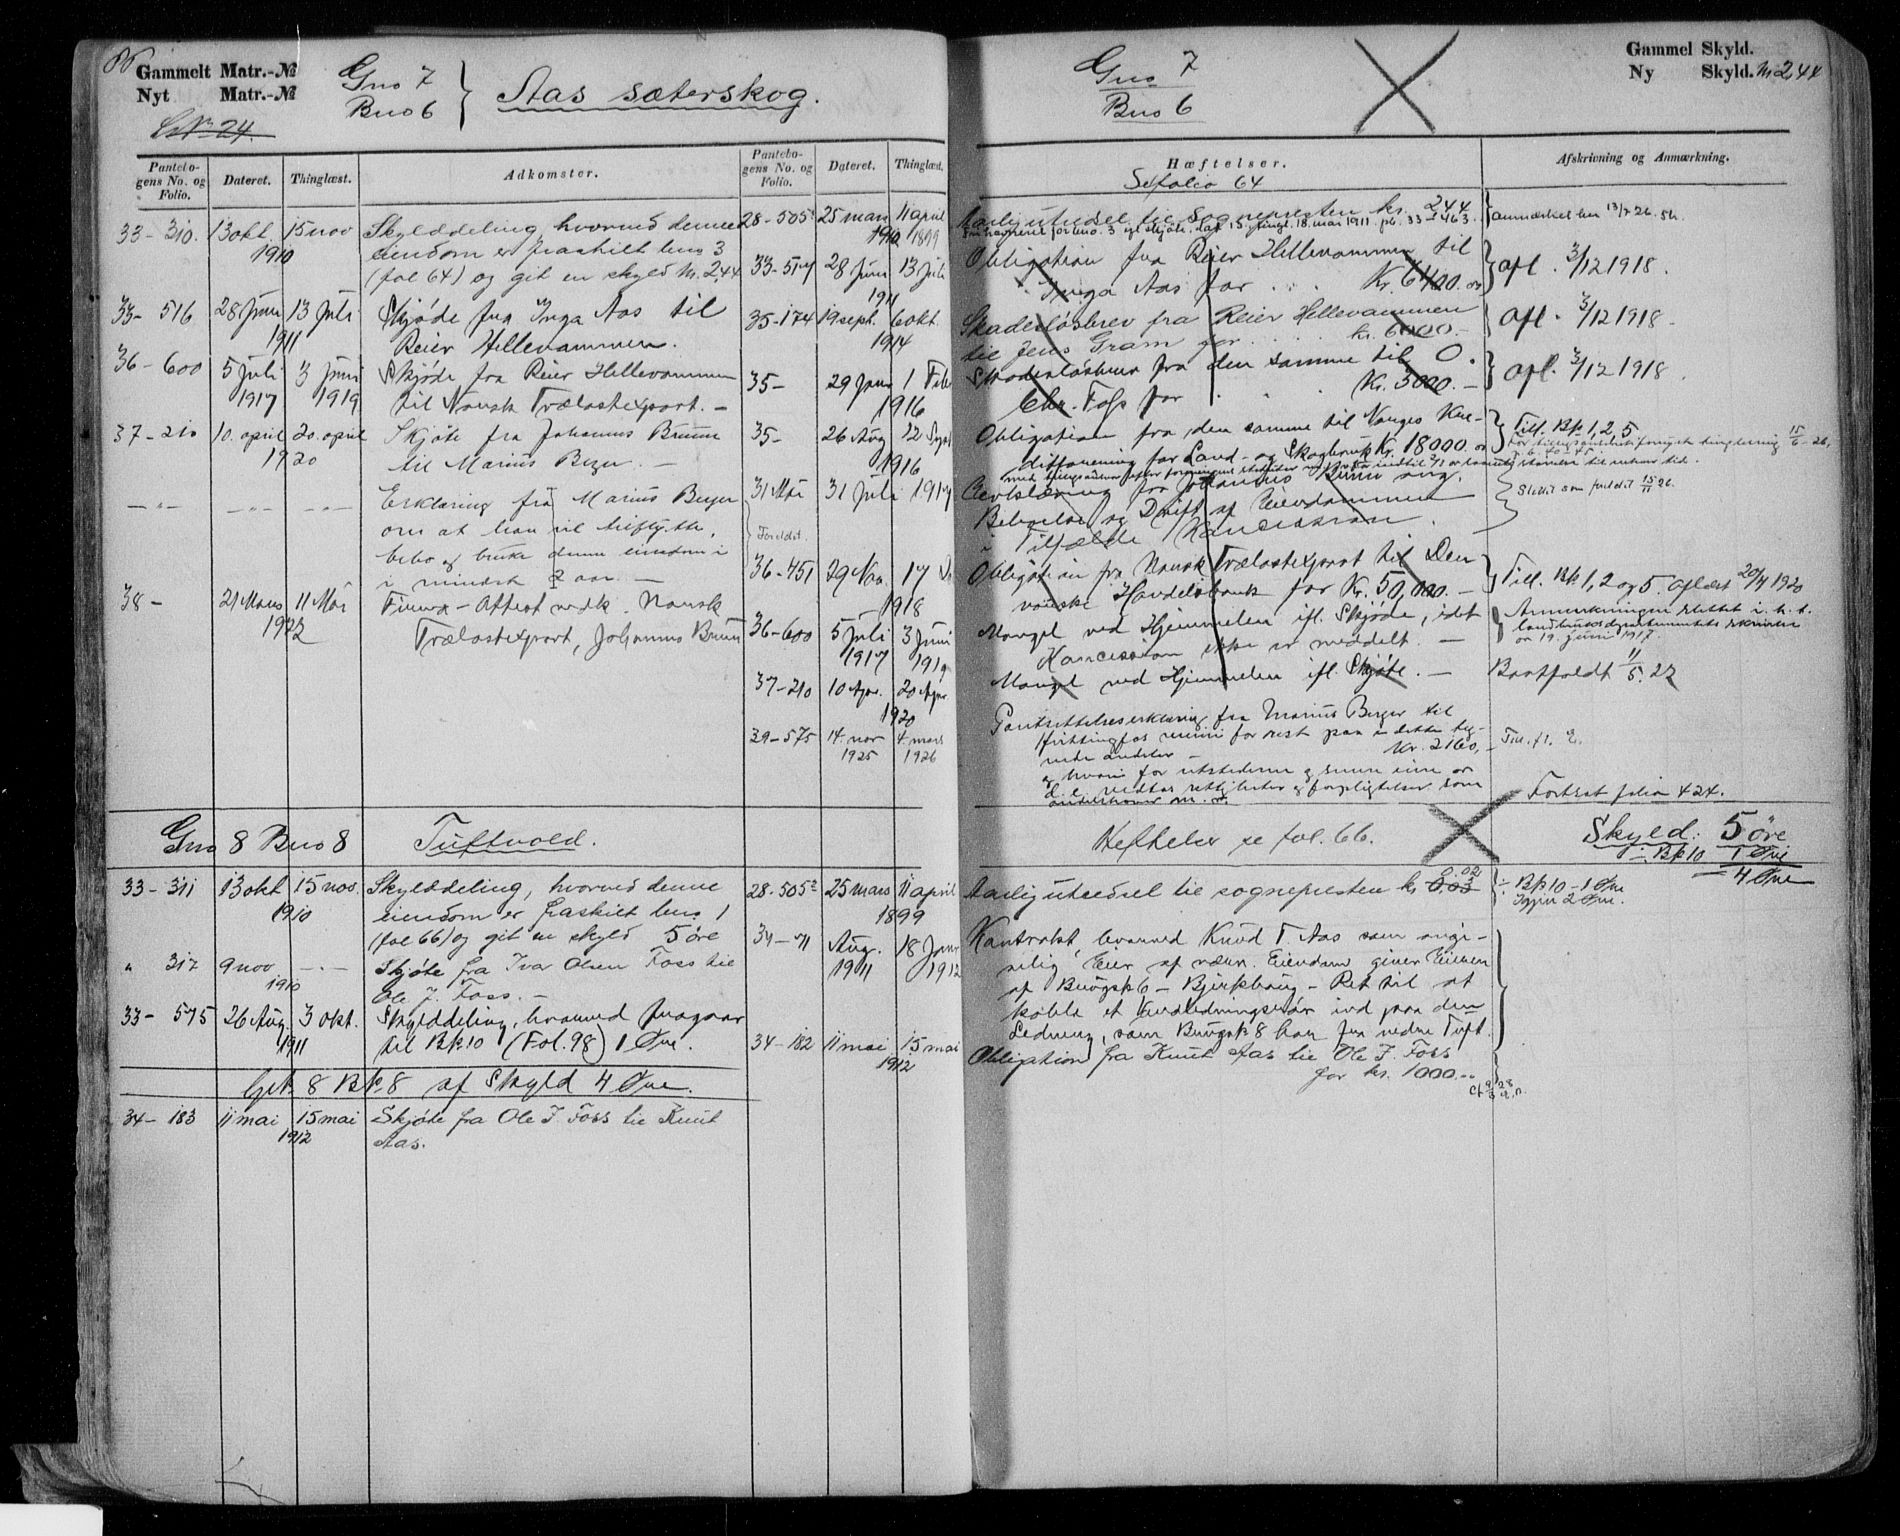 86
Gammelt Matr.-№
Nyt Matr.-№
Gno 7
Bno 6
Aas sæterskog.
Pantebo-
gens No. og
Folio.
Dateret.
Thinglæst.
Adkomster.
33-310. 13 okt 15 nov
1910
Skylddeling, hvorved denne
eiendom er fraskilt bno 3
(fol 64) og git en skyld M. 2,44
33-516 28 Juni 13 Juli
1911
Skjøde fra Inga Aas til
Reier Hellevammen.
36-600 5 Juli 3 Juni
1917 1919
Skjøde fra Reier Hellevammen
til Norsk Trælastexport. —
37-210 10. april 20. april
1920
Skjøte fra Johannes Bruun
til Marius Berger. —
— " — — " — — " —
Erklæring fra Marius Berger
om at han vil tilflytte,
bebo og bruke denne eiendom i
i mindst 2 aar. —
38- 21 Mars 11 Mai
1922
Firma-Attest vedk. Norsk
Trælastexport, Johannes Bruun
Pantebo-
gens No. og
Folio.
Dateret.
Thinglæst.
28-505² 25 mars 11 april
1899
33-517 28 Juni 13 Juli
1911
35-174 19 sept. 6 okt.
1914
35- 29 Jan 1 Feb
1916
35- 26 Aug 12 Sept
1916
31 Mai 31 Juli 1917
Foreldet.
36-451 29 Nov. 17
1918
36-600 5 Juli 3 Juni
1917 1919
37-210 10 Apr. 20 Apr
1920
39-575 14. nov 4. mars
1925 1926
Gno 8 Bno 8 Tuftvold.
33-311 13 okt 15 nov.
1910
Skylddeling, hvorved denne
eiendom er fraskilt bno 1
(fol 66) og git en skyld 5 øre
" 317 9 nov — " —
1910
Skjøte fra Ivar Olsen Foss til
Ole J. Foss. —
33-575 26 Aug. 3 okt.
1911
Skylddeling, hvorved fragaar
til Bk. 10 (Fol. 98) 1 Øre.
Gk. 8 Bk. 8 af Skyld 4 Øre.
34-183 11 mai 15 mai
1912
Skjøte fra Ole J Foss til Knut
Aas.
28-505² 25 mars 11 april
1899
34-71 Aug. 18 Jan
1911 1912
34-182 11 mai 15 mai
1912
Gno 7
Bno 6
Gammel Skyld.
Ny Skyld. M 2 44
Hæftelser.
Se folio 64
Afskrivning og Anmærkning.
Aarlig utredsel til Sognepresten kr. 2,44
anmærket her
Obligation fra Reier Hellevammen til
Inga Aas for . . . Kr. 6400.
afl. 3/12 1918.
Skadesløsbrev fra Reier Hellevammen
til Jens Gram for . . . kr. 6000.—
afl. 3/12 1918.
Skadesløsbrev fra den samme til O.
Chr. Foss for . . . Kr. 3000. —
afl. 3/12 1918.
Obligation fra den samme til Norges Kre-
ditforening for Land- og Skogbruk Kr. 18000.
Till. Bk 1, 2, 5
Johannes Bruun ang.
Beboelse og Drift af Eiendommen
i Tilfælde Koncession.
Slettet som foreldet 15/11 26.
Obligation fra Norsk Trælastexport til Den
norske Handelsbank for Kr. 50,000. —
Till. Bk. 1, 2 og 5. Aflæst 20/4 1920
Mangel ved Hjemmelen ifl. Skjøde, idet
Koncession ikke er meddelt. —
Anmerkningen slettet i. h. t.
landbruksdepartementets skrivelse
av 19. juni 1917.
Mangel ved Hjemmelen ifl. Skjøte. —
Bortfaldt 11/5. 22
Pantsettelseserklæring fra Marius Berger til
kr. 2160,-
Fortsat folio 424.
Heftelser se fol. 66.
Skyld: 5 øre
÷ Bk 10 1 Øre
4 Øre
Aarlig utredsel til sognepresten kr 0.03
0.02
÷ Bk 10 - 1 Øre
Igjen 2 Øre.
Kontrakt, hvorved Knud T. Aas som
Eier af nævn. Eiendom giver Eieren
af Brugsk 6 — Bjerkhaug — Ret til at
koble et Vandledningsrør ind paa den
Ledning, som Brugsk 8 har fra nedre Tuft.
Obligation fra Knut Aas til Ole J. Foss
for kr. 1000.—